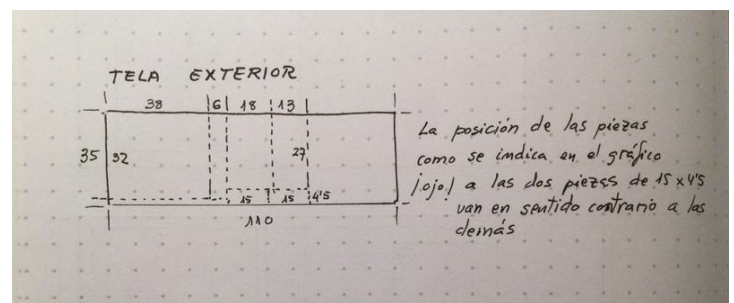 TELA EXTERIOR
38 6 18 13
35 32 27
15 15 4'5
110
La posición de las piezas
como se indica en el gráfico
¡ojo! a las dos piezas de 15 x 4'5
van en sentido contrario a las
demás